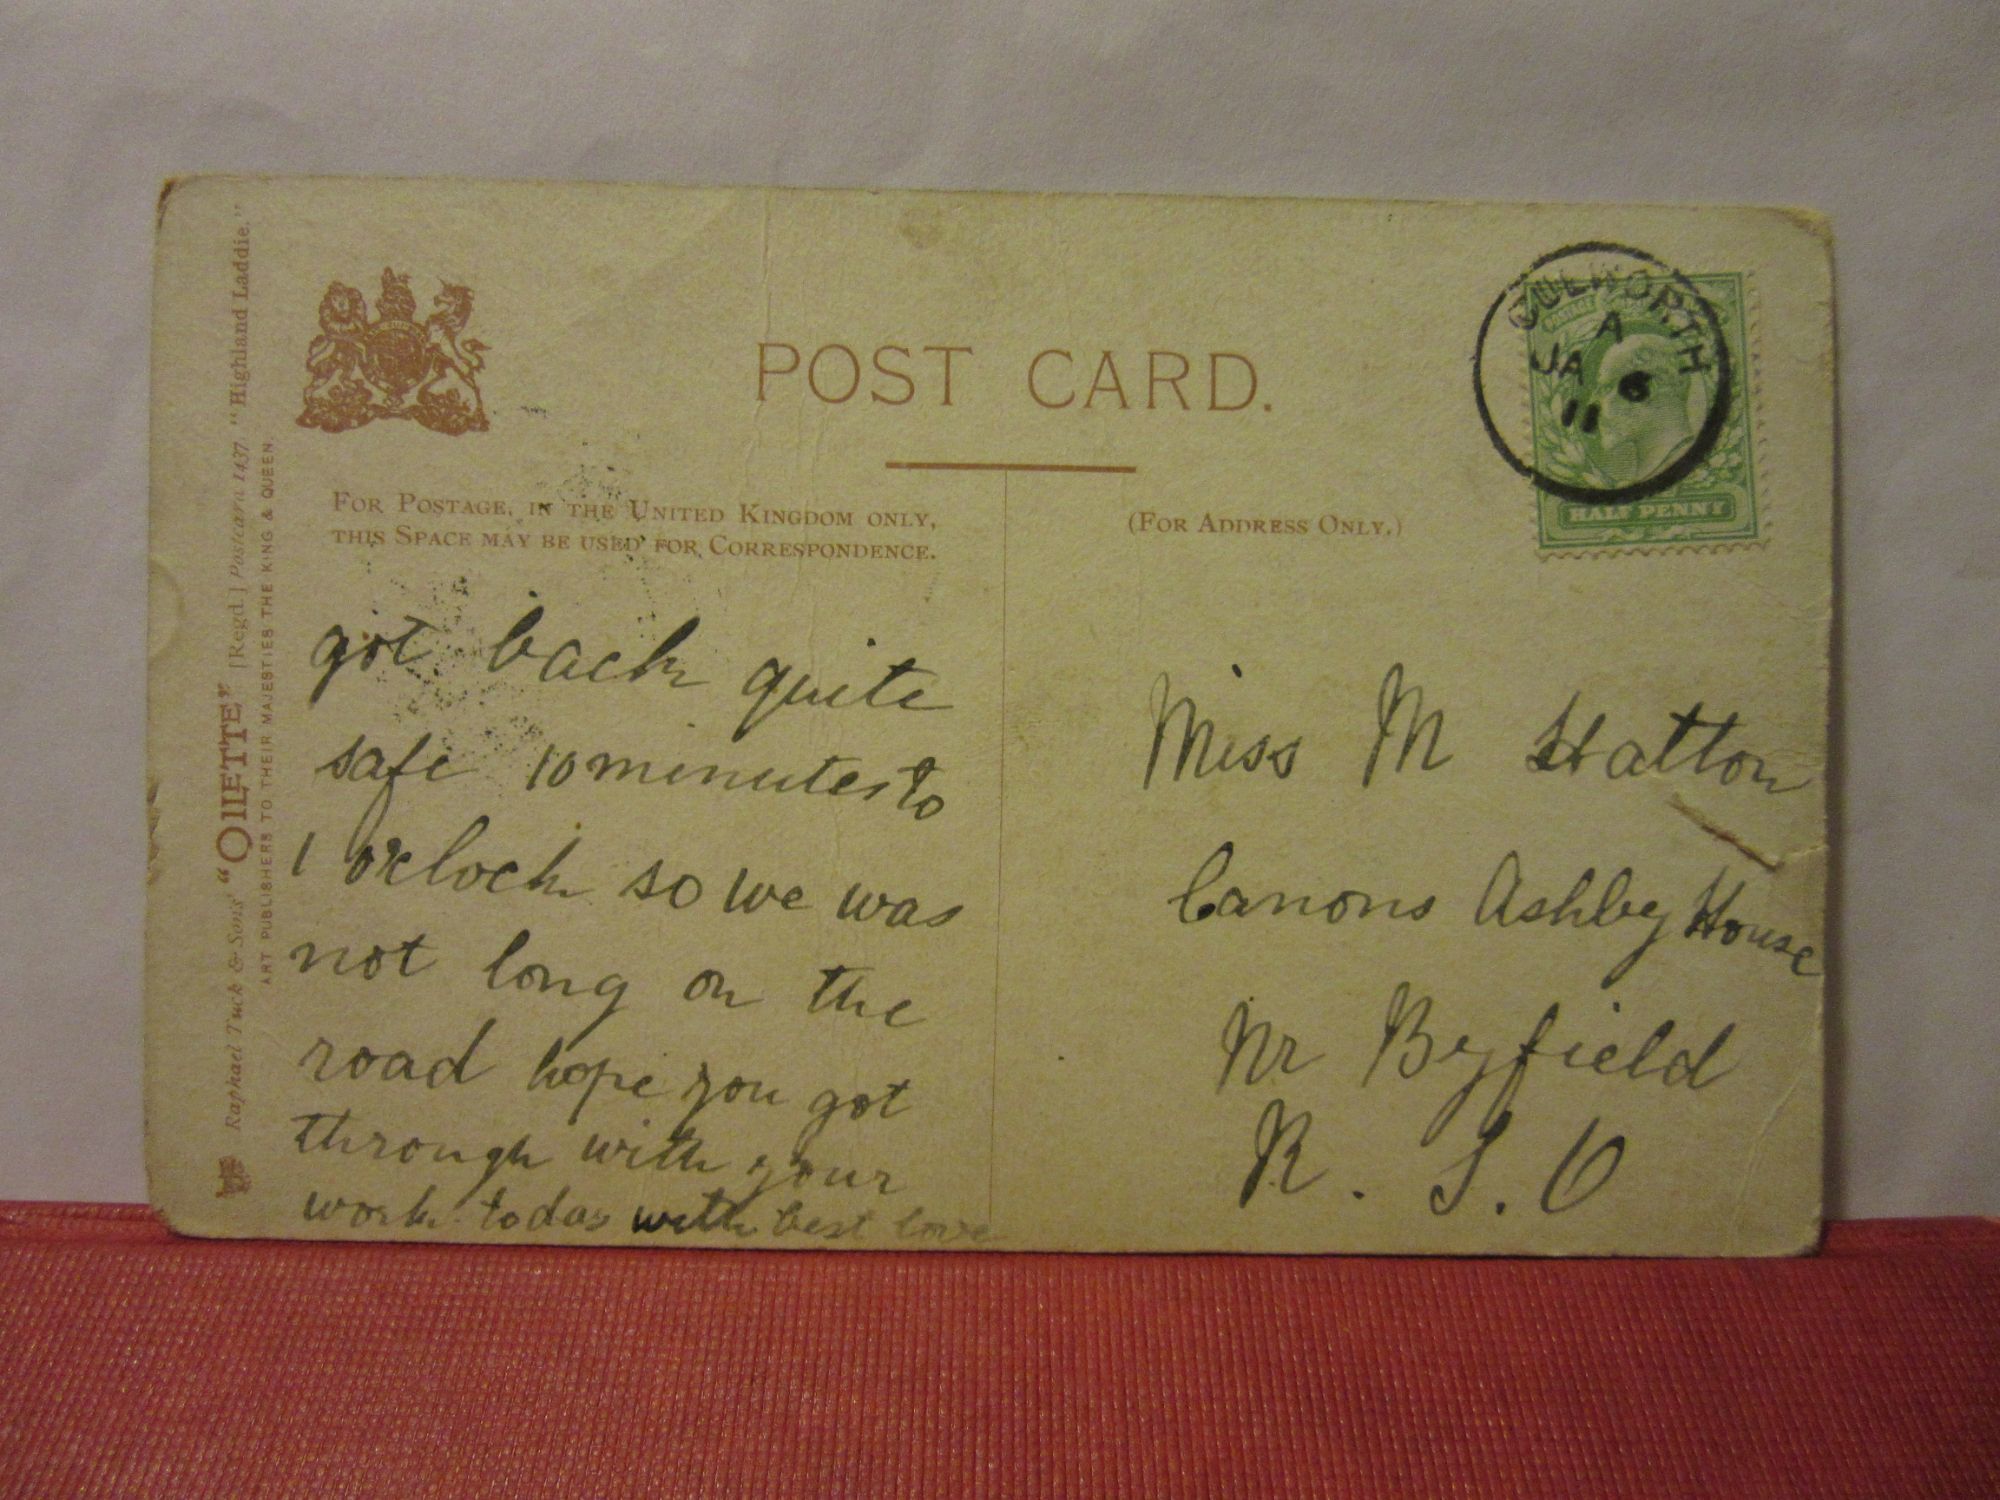 POST CARD.
FOR POSTAGE, IN THE UNITED KINGDOM ONLY,
THIS SPACE MAY BE USED FOR CORRESPONDENCE.
(FOR ADDRESS ONLY.)
CULWORTH
A
JA 6
11
HALF PENNY
got back quite
safe 10 minutes to
1 o'clock so we was
not long on the
road hope you got
through with your
work today with best love
Miss M Hatton
Canons Ashby House
Nr Byfield
R.S.O
Raphael Tuck & Sons' "OILETTE" [Regd.] Postcard 1437. "Highland Laddie."
ART PUBLISHERS TO THEIR MAJESTIES THE KING & QUEEN.